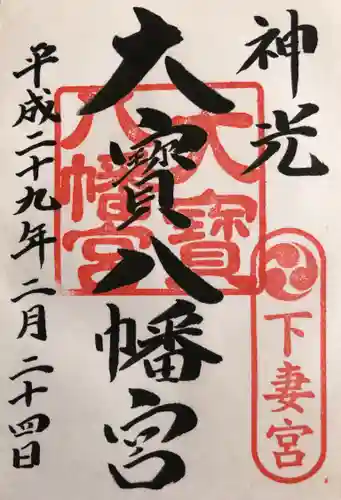 神光
大寳八幡宮
平成二十九年二月二十四日
下妻宮
大寳
八幡宮